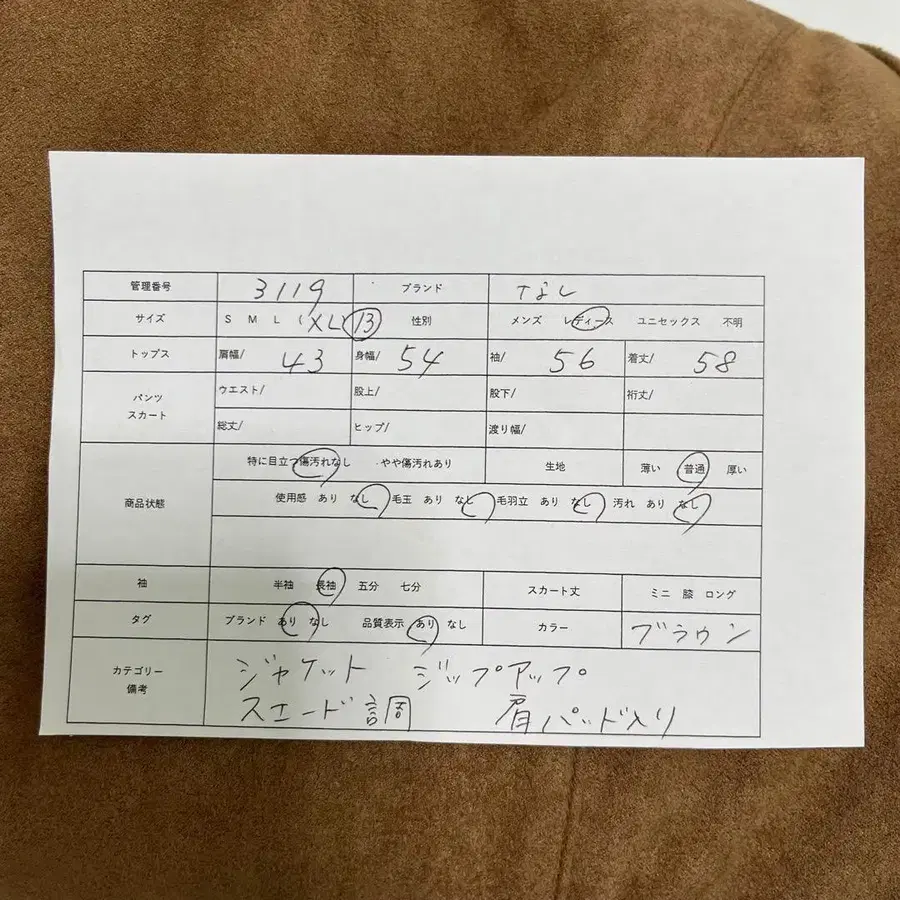 管理番号 3119 ブランド なし
サイズ S M L (XL) 13 性別 メンズ レディース ユニセックス 不明
トップス 肩幅/ 43 身幅/ 54 袖/ 56 着丈/ 58
パンツ スカート ウエスト/ 股上/ 股下/ 裄丈/
総丈/ ヒップ/ 渡り幅/
商品状態 特に目立つ傷汚れなし ・やや傷汚れあり 生地 薄い 普通 厚い
使用感 あり なし 毛玉 あり なし 毛羽立 あり なし 汚れ あり なし
袖 半袖 長袖 五分 七分 スカート丈 ミニ 膝 ロング
タグ ブランド あり なし 品質表示 あり なし カラー ブラウン
カテゴリー 備考 ジャケット ジップアップ
スエード調 肩パッド入り